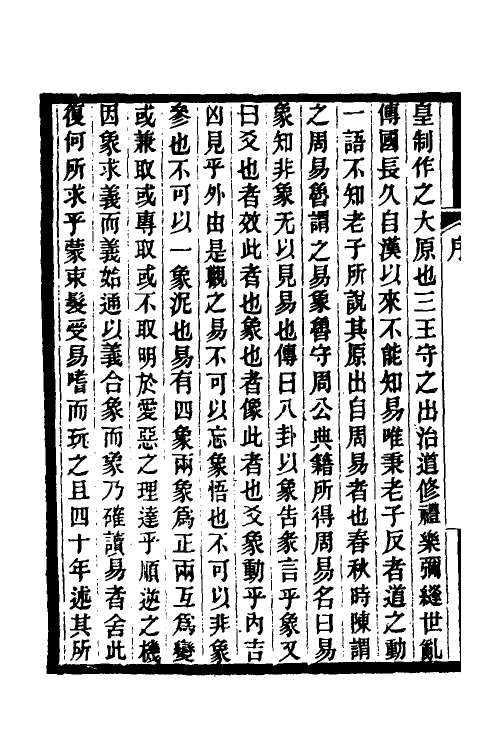 序
皇制作之大原也三王守之出治道修禮樂彌縫世亂
傳國長久自漢以來不能知易唯秉老子反者道之動
一語不知老子所說其原出自周易者也春秋時陳謂
之周易魯謂之易象魯守周公典籍所得周易名曰易
象知非象无以見易也傳曰八卦以象告彖言乎象又
曰爻也者效此者也象也者像此者也爻象動乎內吉
凶見乎外由是觀之易不可以忘象悟也不可以非象
參也不可以一象泥也易有四象兩象爲正兩互爲變
或兼取或專取或不取明於愛惡之理達乎順逆之機
因象求義而義始通以義合象而象乃確讀易者舍此
復何所求乎蒙束髮受易嗜而玩之且四十年述其所